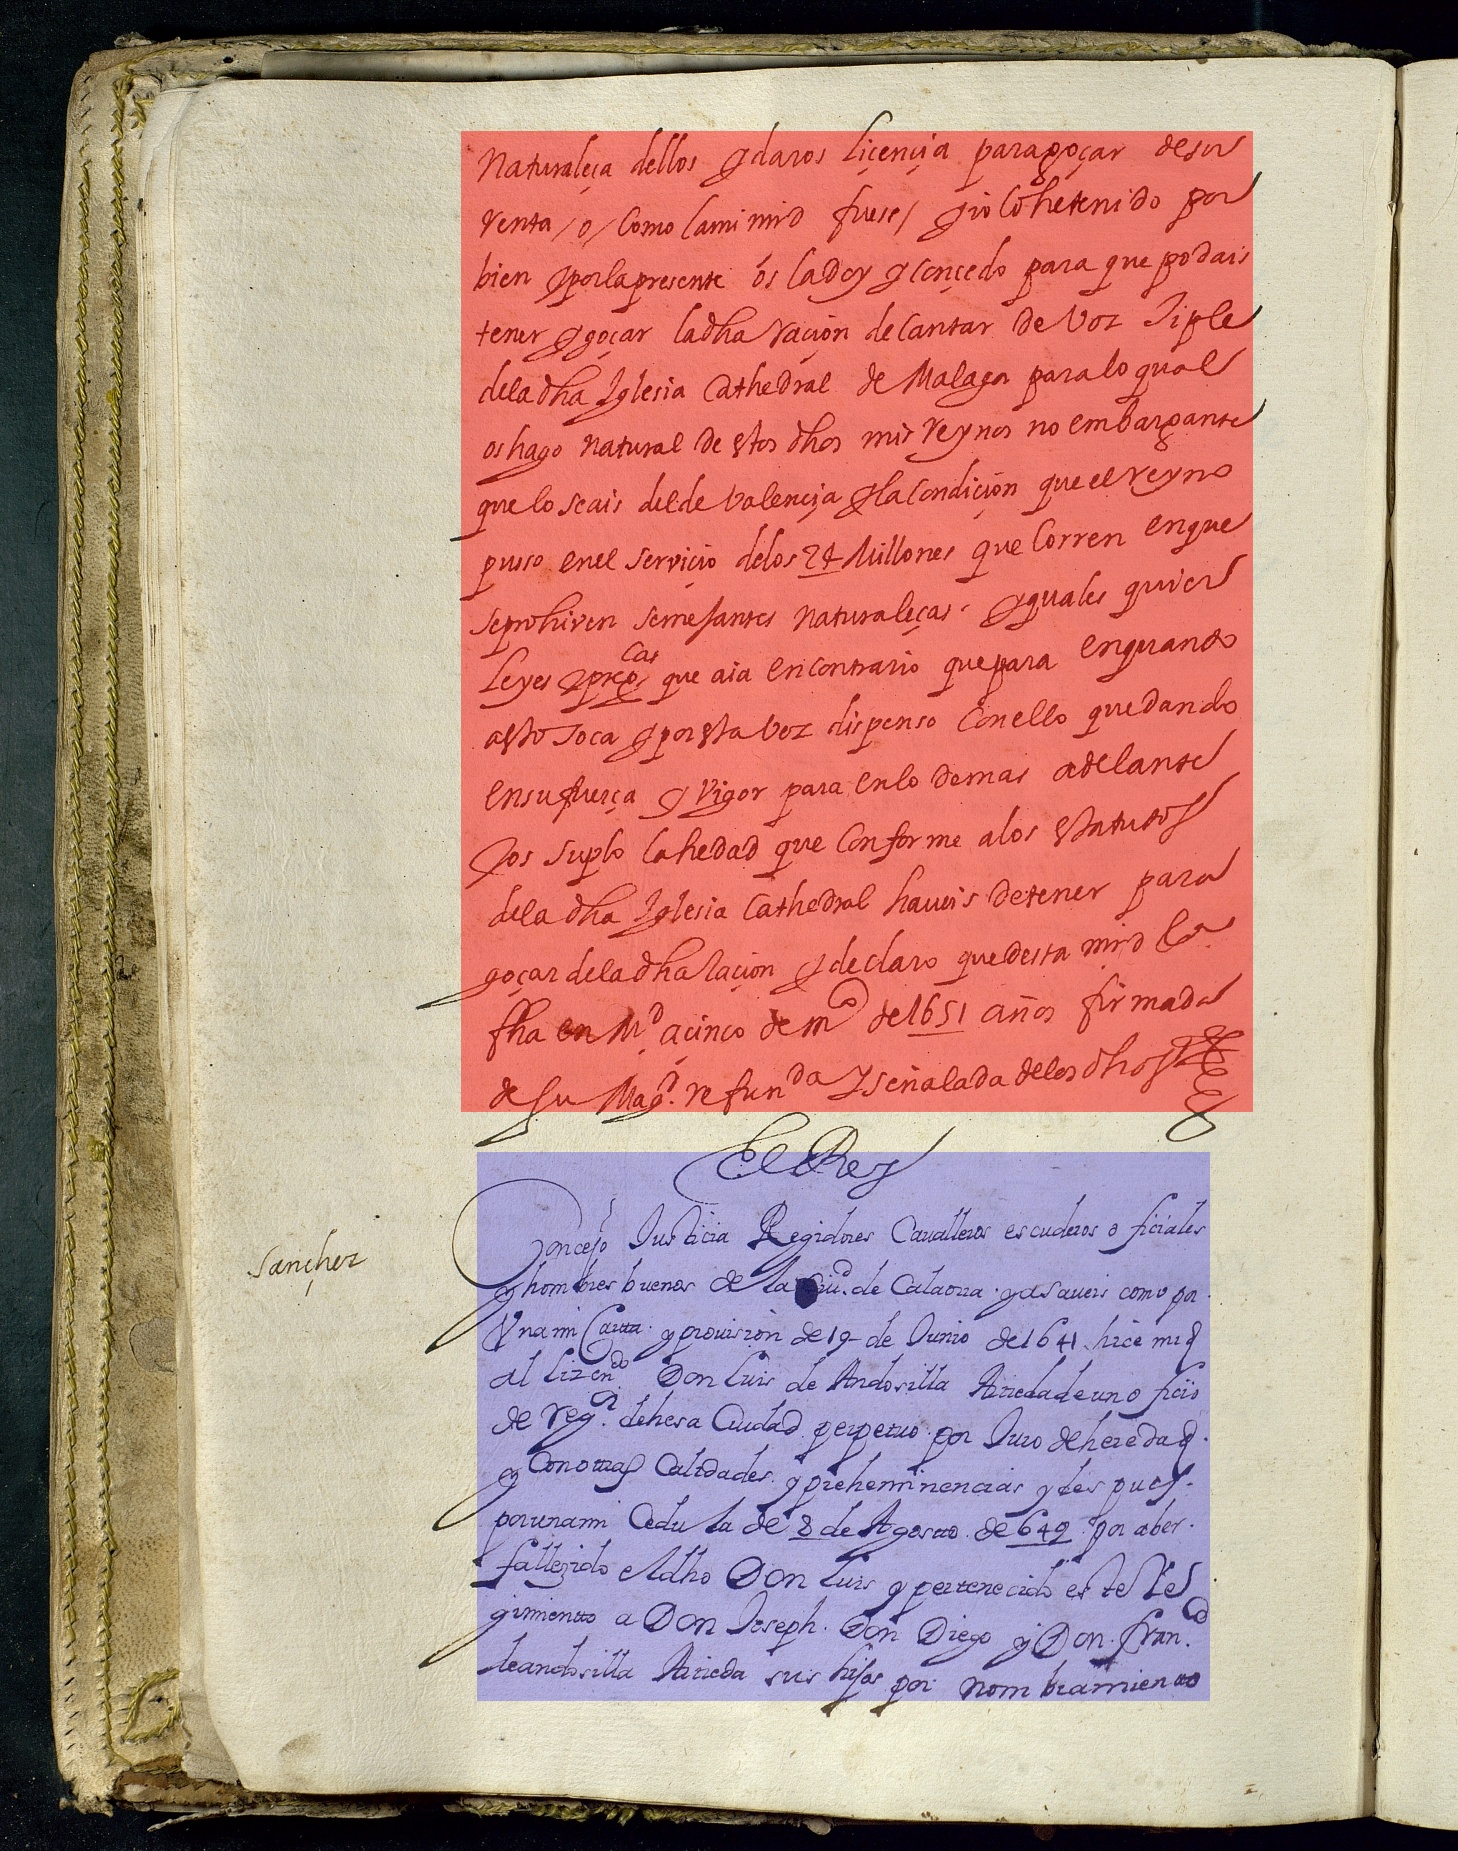 Naturaleça dellos y daros liçençia para goçar de su
renta / o / como la mi mrd fuese / y io lo he tenido por
bien y por la presente os la doy y conçedo para que podais
tener y goçar la dha raçion de cantar de voz Tiple
de la dha Iglesia Cathedral de Malaga para lo qual
os hago natural destos dhos mis reynos no embargante
que lo seais del de Valençia y la condiçion que el reyno
puso en el serviçio de los 24 Millones que corren en que
se prohiven semejantes naturaleças y quales quier
Leyes y pregcas que aia en contrario que para en quanto
a esto toca y por esta vez dispenso con ello quedando
en su fuerça y vigor para en lo demas adelante
Y os suplo la hedad que conforme a los estatutos
de la dha Iglesia Cathedral haveis de tener para
goçar de la dha raçion y declaro que desta mrd &a
fha en Md a cinco de mço de 1651 años firmada
de su Magd. refrenda Y señalada de los dhos
El Rey
Sançhez
Concejo Justicia Regidores Cavalleros escuderos oficiales
y hombres buenos de la Ciud. de Calaorra ya saveis como por
Una mi Carta y provision de 19 de Junio de 1641 hice mrd
al Lizendo Don Luis de Andosilla Arieda de un oficio
de regor de hesa Ciudad perpetuo por Juro de heredad
y con otras Calidades y preheminencias y despues
por una mi Cedula de 8 de Agosto de 649 por aber
fallezido el dho Don Luis y pertenecido este Re
gimiento a Don Joseph Don Diego y Don Franco
de andosilla Arieda sus hijos por nombramiento